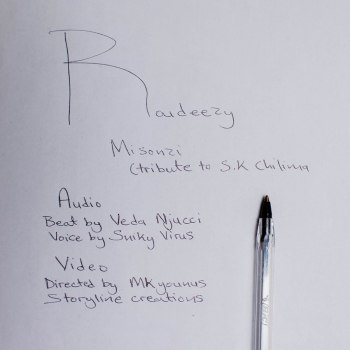 Raudeezy
Misonzi
(tribute to S.K Chilima
Audio
Beat by Veda Njucci
Voice by Sniky Virus
Video
Directed by MKyounus
Storyline creations